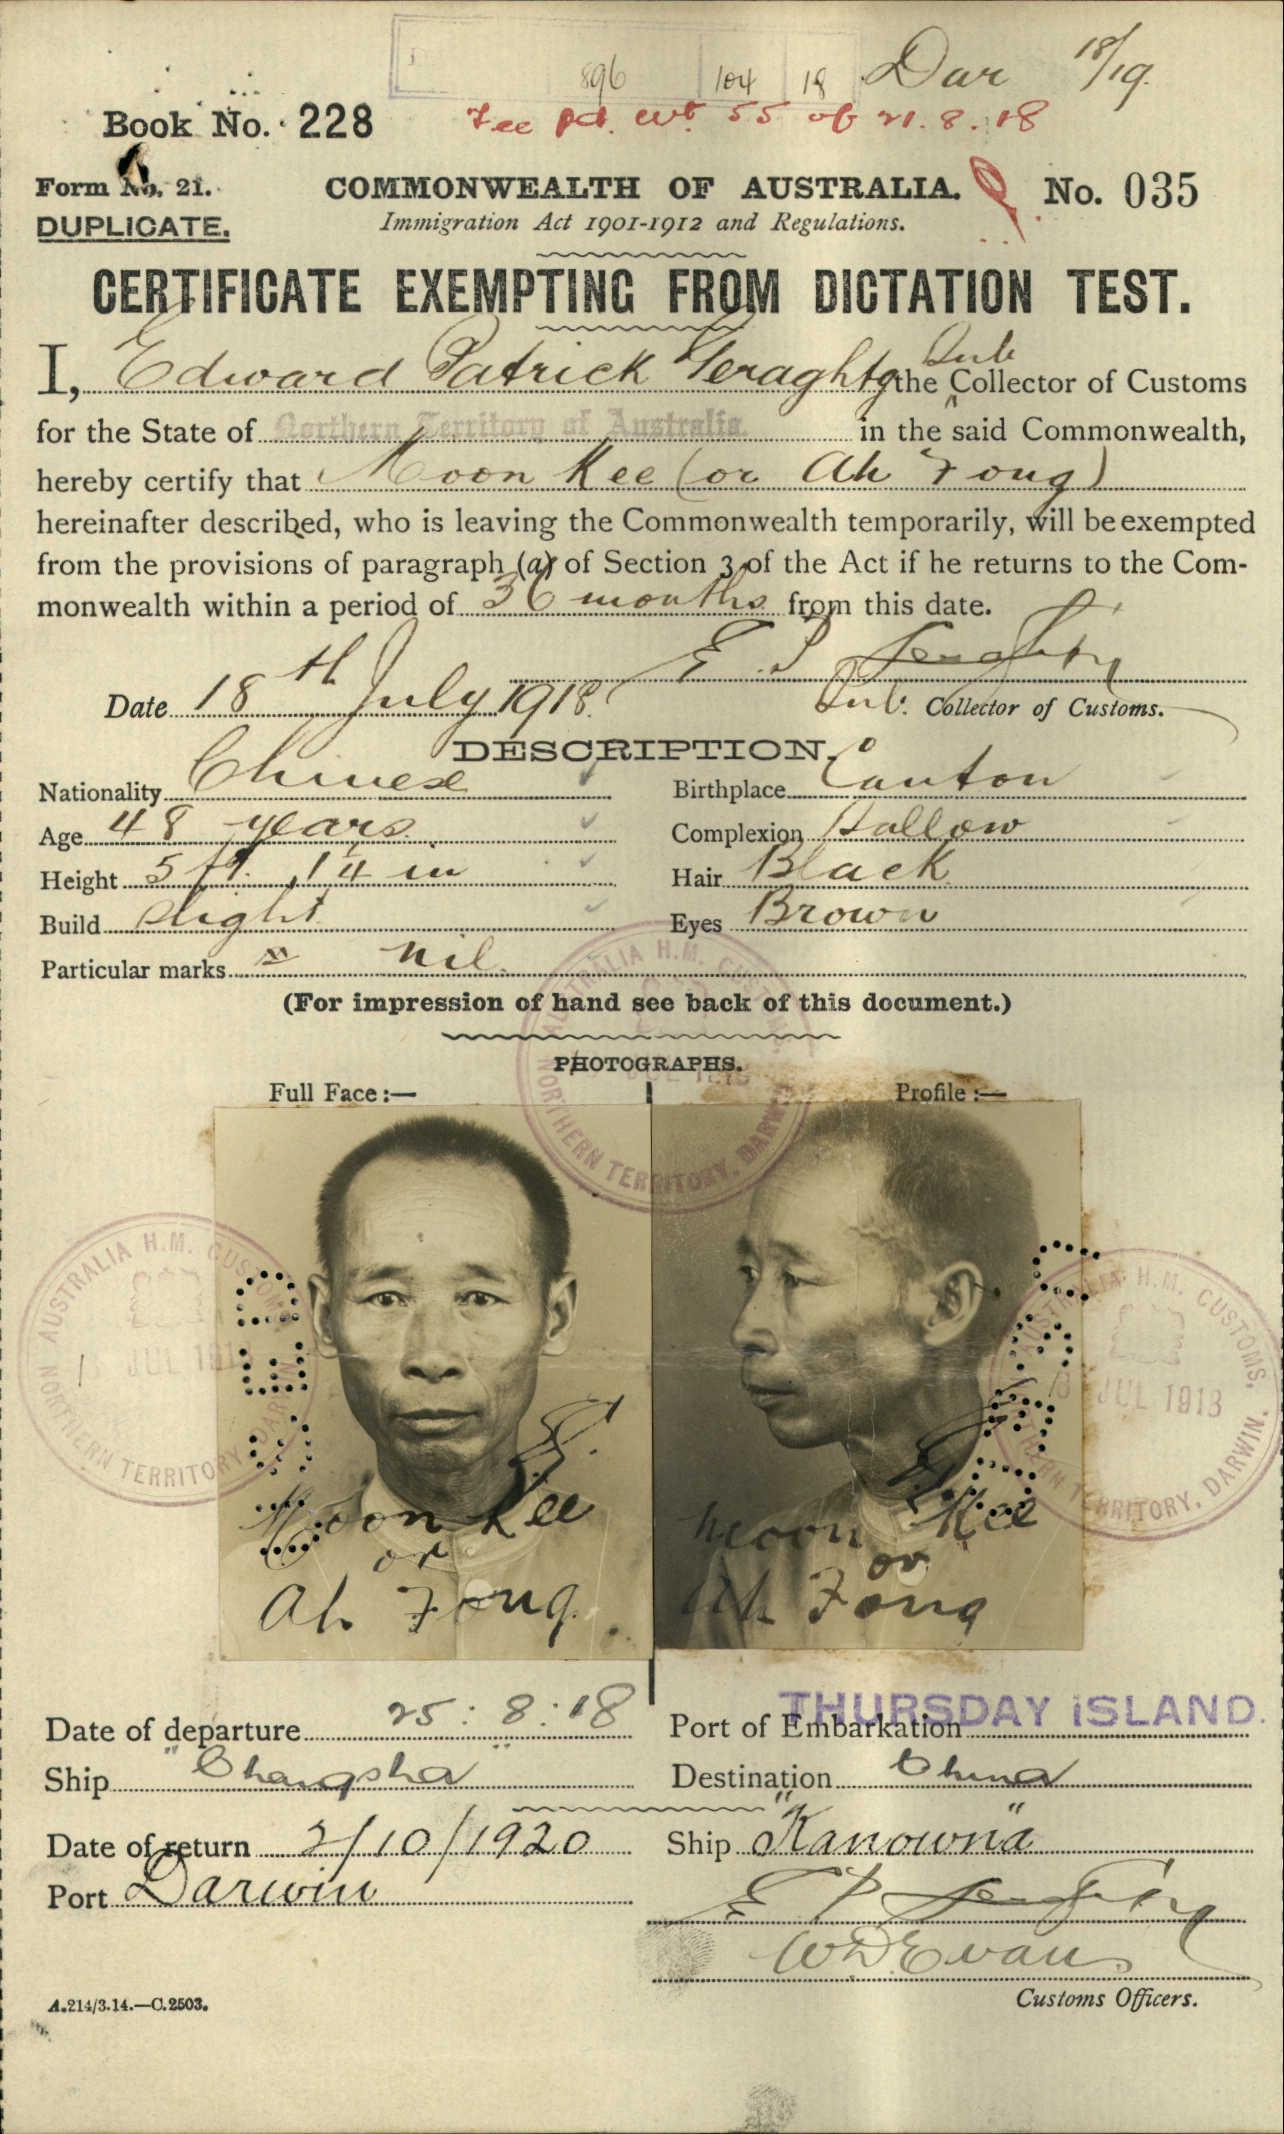 896 104 18 Dar 18/19.
Book No. 228
Fee pd. 55 of 21.8.18
Form No. 21.
COMMONWEALTH OF AUSTRALIA.
No. 035
DUPLICATE.
Immigration Act 1901-1912 and Regulations.
CERTIFICATE EXEMPTING FROM DICTATION TEST.
I, Edward Patrick Geraghty the Sub Collector of Customs
for the State of Northern Territory of Australia. in the said Commonwealth,
hereby certify that Moon Kee (or Ah Fong)
hereinafter described, who is leaving the Commonwealth temporarily, will be exempted
from the provisions of paragraph (a) of Section 3 of the Act if he returns to the Com-
monwealth within a period of 36 months from this date.
E P Geraghty
Date 18th July 1918. Sub. Collector of Customs.
DESCRIPTION.
Nationality Chinese Birthplace Canton
Age 48 years Complexion Sallow
Height 5 ft. 1¼ in Hair Black
Build Slight Eyes Brown
Particular marks nil.
(For impression of hand see back of this document.)
PHOTOGRAPHS.
Full Face:— Profile:—
AUSTRALIA H.M. CUSTOMS, NORTHERN TERRITORY, DARWIN.
AUSTRALIA H.M. CUSTOMS, NORTHERN TERRITORY, DARWIN.
JUL 191
AUSTRALIA H.M. CUSTOMS, NORTHERN TERRITORY, DARWIN.
18 JUL 1918
Moon Kee
or
Ah Fong
Moon Kee
or
Ah Fong
Date of departure 25:8:18 Port of Embarkation THURSDAY ISLAND.
Ship "Changsha" Destination China
Date of return 2/10/1920 Ship "Kanowna"
Port Darwin E P Geraghty
W D Evans
A.214/3.14.—C.2503. Customs Officers.